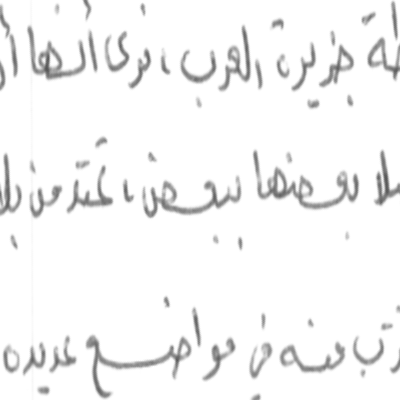 جزيرة العرب، نرى أنها
بعضها ببعض، تمتد من
منه في مواضع عديده